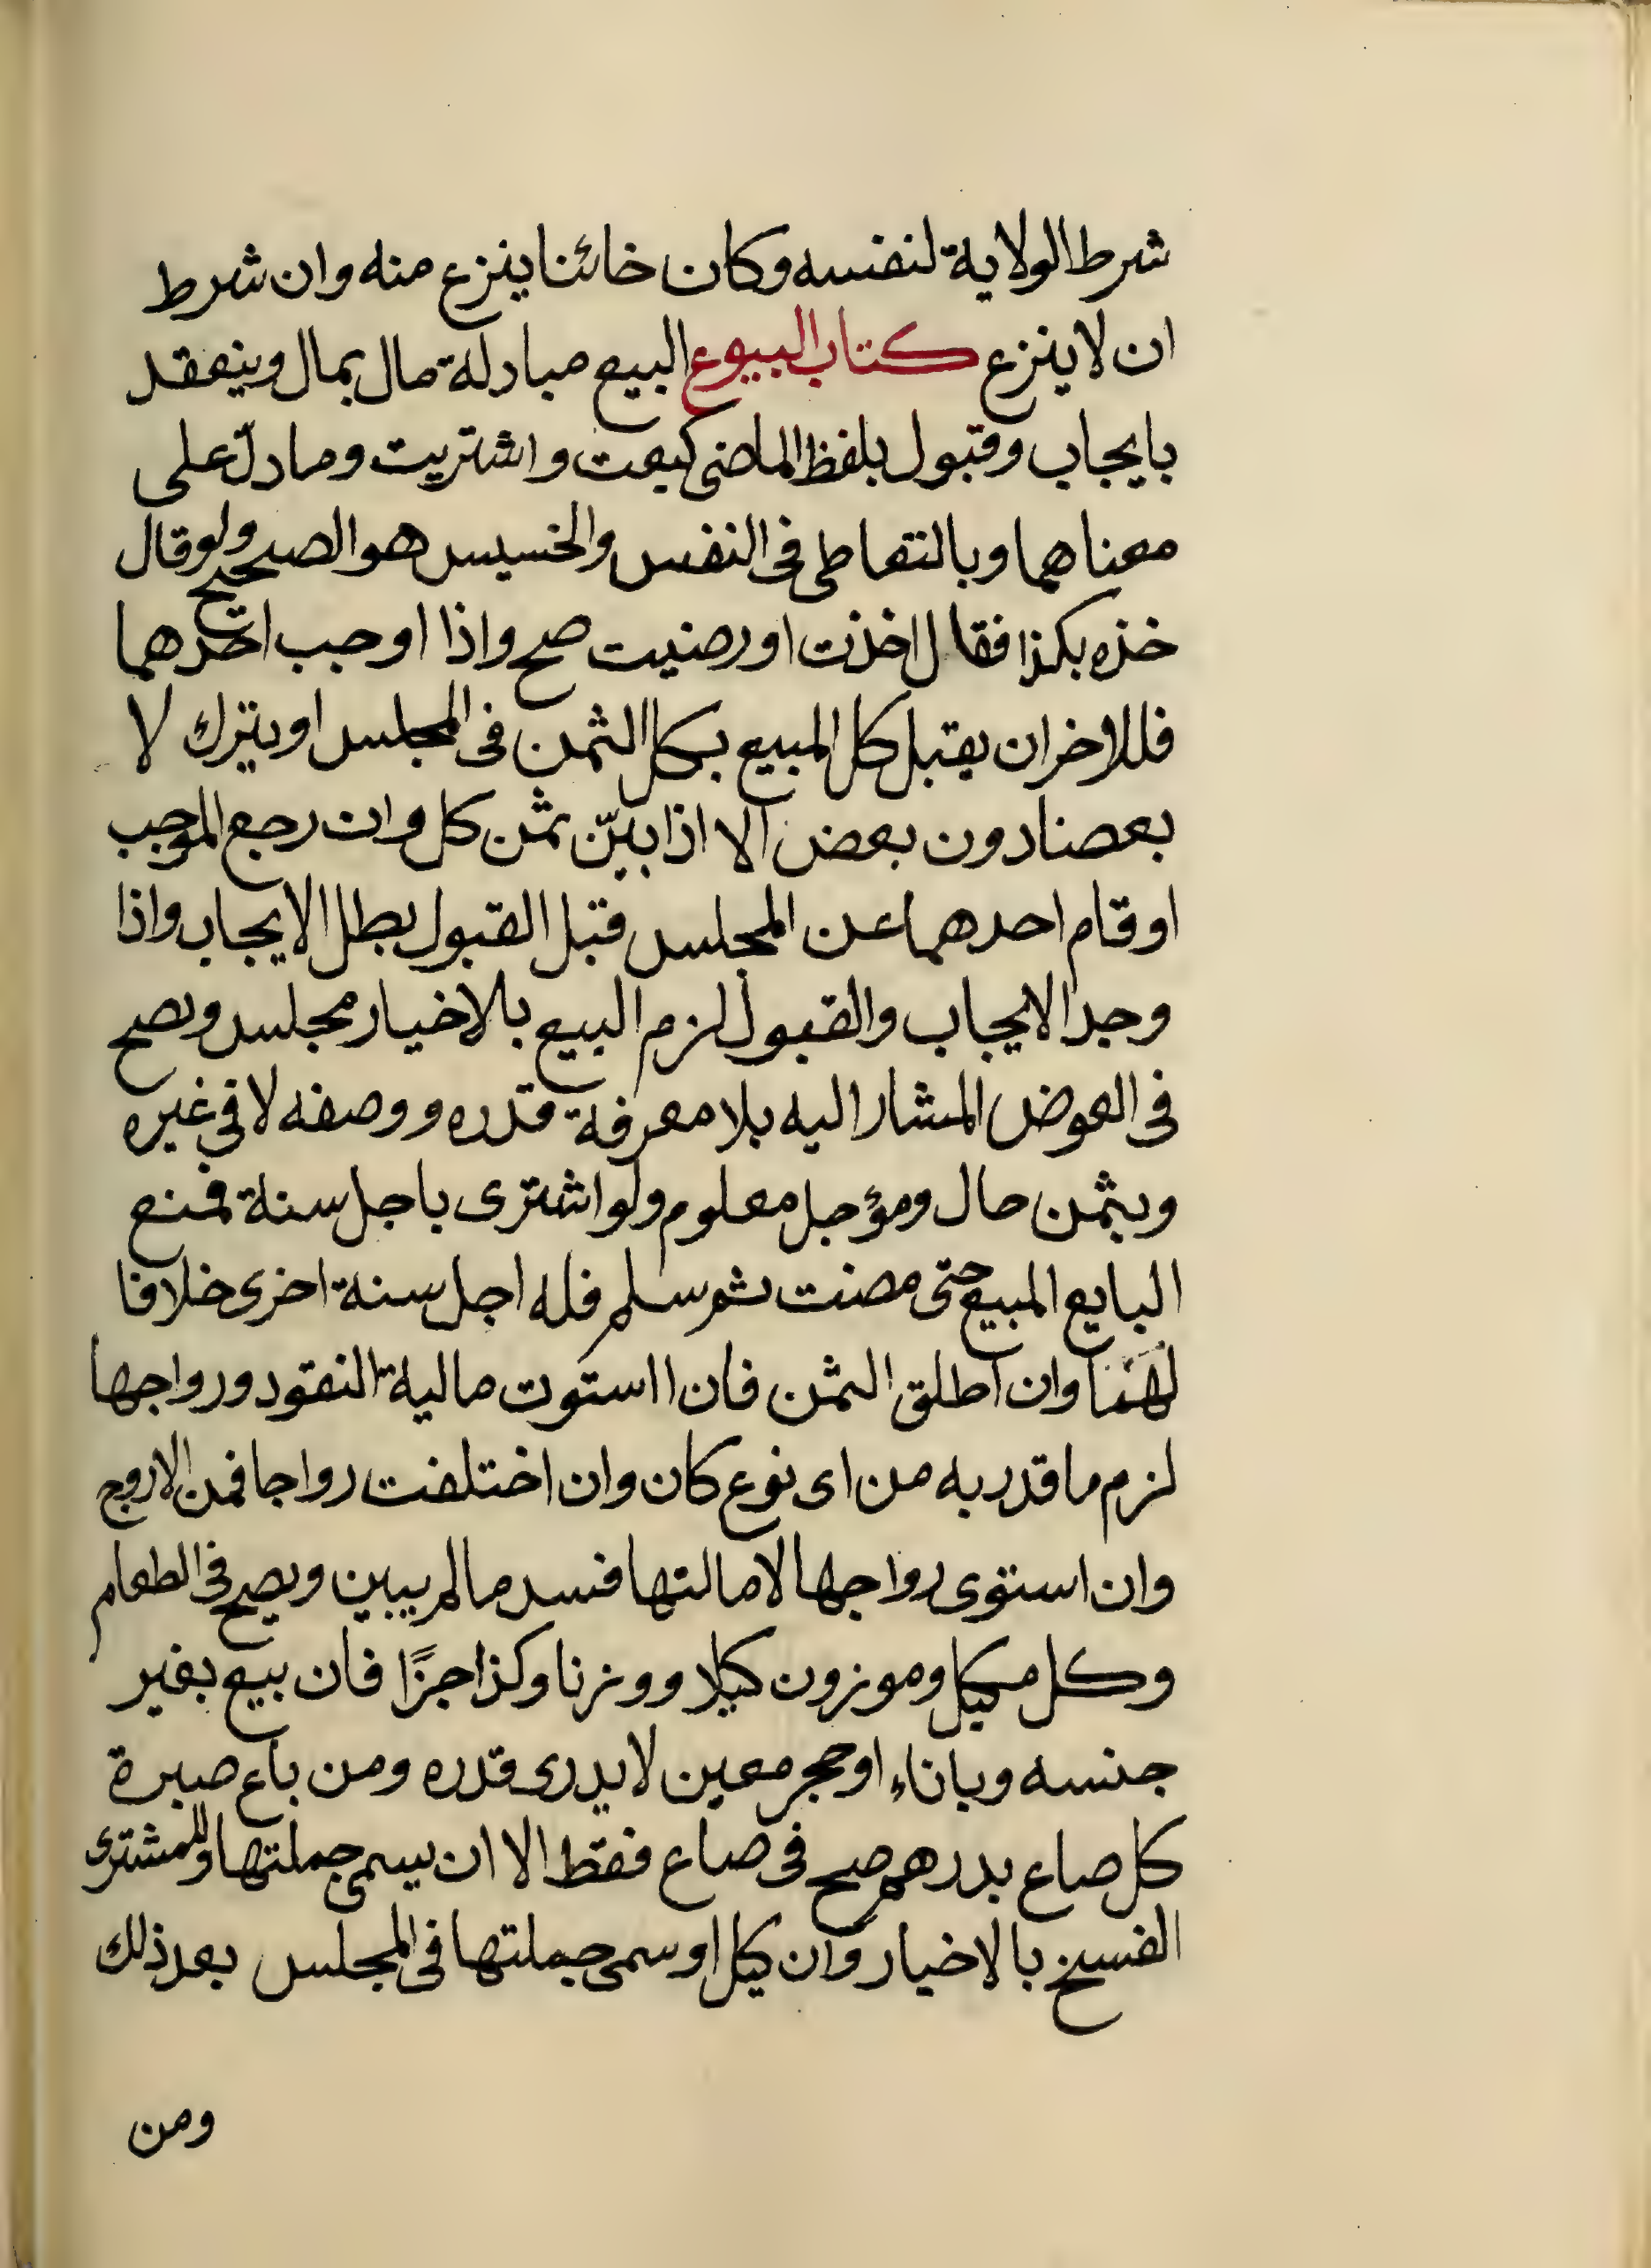 شرط الولاية لنفسه وكان خائنا ينزع منه وان شرط
ان لا ينزع كتاب البيوع البيع مبادلة مال بمال وينعقد
بايجاب وقبول بلفظ الماضى كبعت واشتريت وما دلّ على
معناهما وبالتعاطى فى النفس والخسيس هو الصحيح ولو قال
خذه بكذا فقال اخذت او رضيت صح واذا اوجب احدهما
فللاخر ان يقبل كل المبيع بكل الثمن فى المجلس او يترك لا
بعضا دون بعض الا اذا بيّن ثمن كل وان رجع الموجب
او قام احدهما عن المجلس قبل القبول بطل الايجاب واذا
وجد الايجاب والقبول لزم البيع بلا خيار مجلس ويصح
فى العوض المشار اليه بلا معرفة قدره ووصفه لا في غيره
وبثمن حال ومؤجل معلوم ولو اشترى باجل سنة فمنع
البايع المبيع حتى مضت ثم سلم فله اجل سنة اخرى خلافا
لهما وان اطلق الثمن فان استوت مالية النقود ورواجها
لزم ما قدر به من اى نوع كان وان اختلفت رواجا فمن الاروج
وان استوى رواجها لا مالتها فسد ما لم يبين ويصح فى الطعام
وكل مكيل وموزون كيلا ووزنا وكذا جزًا فان بيع بغير
جنسه وباناء او حجر معين لا يدرى قدره ومن باع صبرة
كل صاع بدرهم صح فى صاع فقط الا ان يسمى جملتها وللمشترى
الفسخ بالاخيار وان كيل او سمى جملتها فى المجلس بعد ذلك
ومن